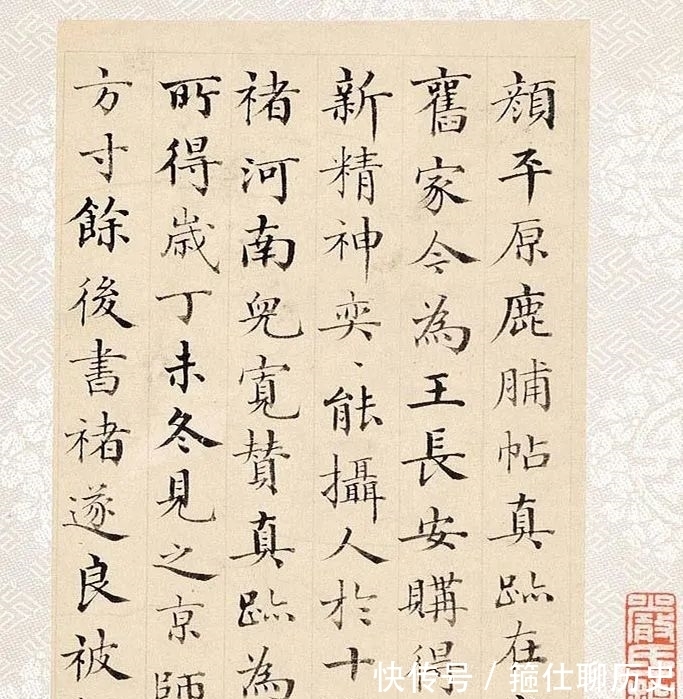 顔平原鹿脯帖真跡在
舊家今為王長安購得
新精神奕、能攝人於十
褚河南兒寬贊真跡為
所得歳丁未冬見之京師
方寸餘後書褚遂良被
快传号/箍仕聊历史